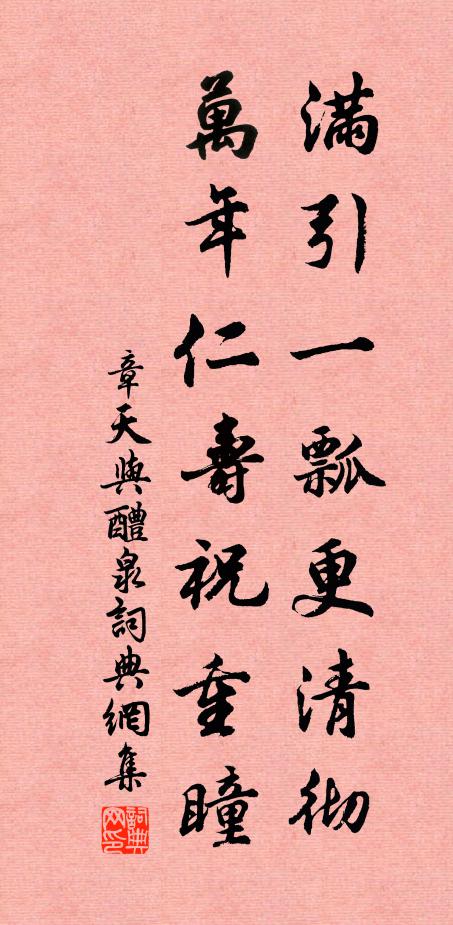 滿引一瓢更清彻
萬年仁壽祝重瞳
章天與醴泉詞典網集
詞典网印